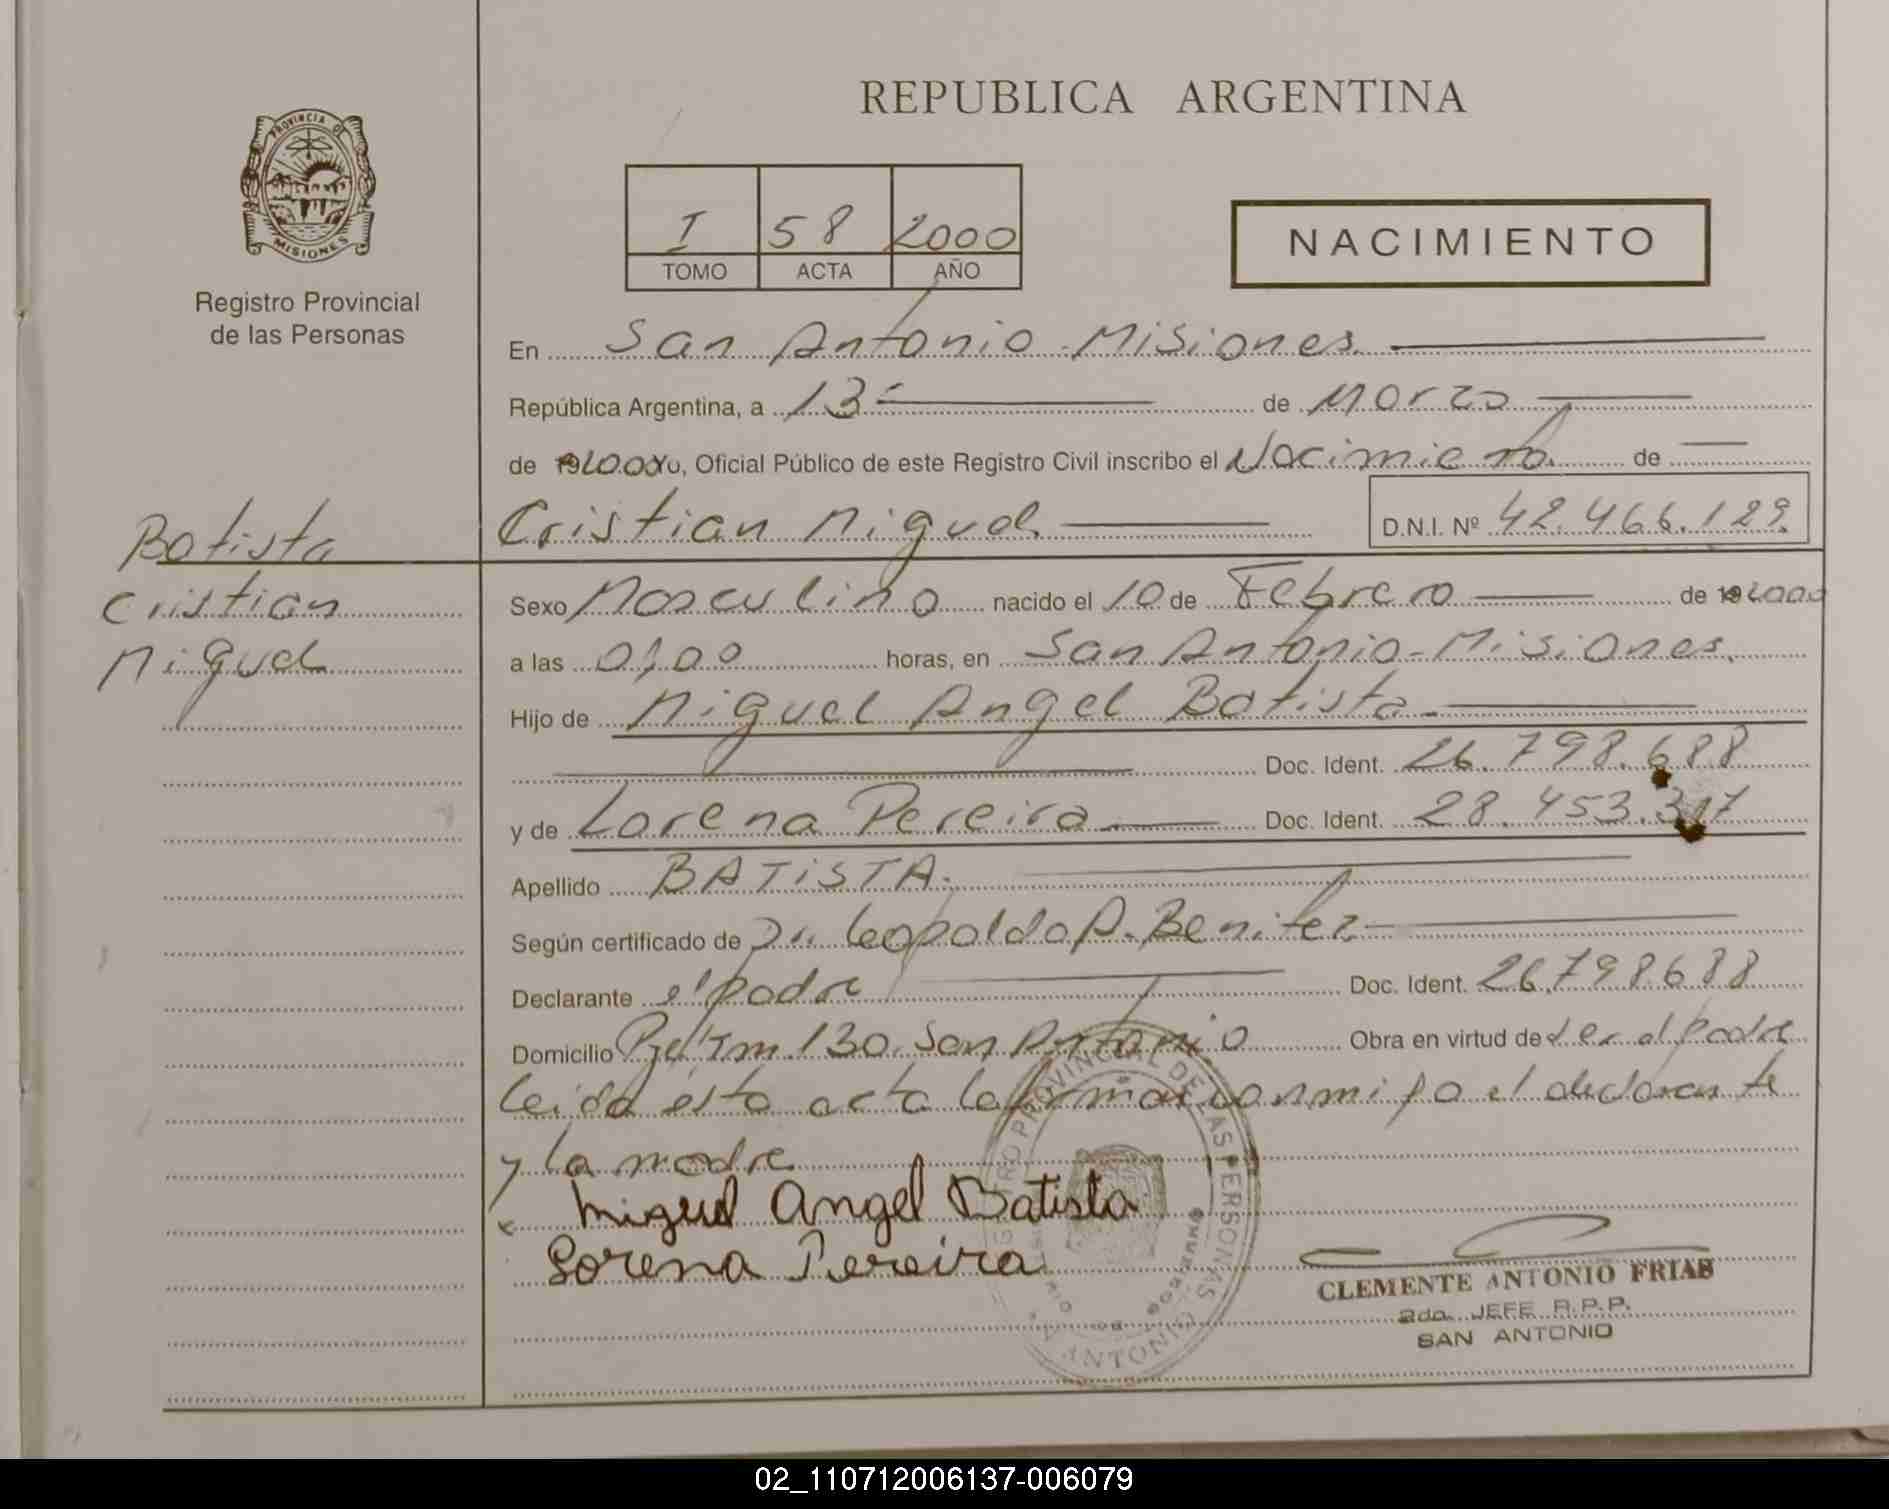 REPUBLICA ARGENTINA
PROVINCIA DE
MISIONES
Registro Provincial
de las Personas
I 58 2000
TOMO ACTA AÑO
NACIMIENTO
En San Antonio - Misiones.
República Argentina, a 13 de Marzo
de 192000 Yo, Oficial Público de este Registro Civil inscribo el Nacimiento de
Cristian Miguel D.N.I. Nº 42.466.129
Batista
Cristian
Miguel
Sexo Masculino nacido el 10 de Febrero de 192000
a las 01,00 horas, en San Antonio - Misiones.
Hijo de Miguel Angel Batista
Doc. Ident. 26.798.688
y de Lorena Pereira Doc. Ident. 28.453.317
Apellido BATISTA.
Según certificado de Dr. Leopoldo A. Benitez
Declarante el padre Doc. Ident. 26.798.688
Domicilio 130. San Antonio Obra en virtud de ser el padre
leida esta acta la firman conmigo el declarante
y la madre
Miguel Angel Batista
Lorena Pereira
REGISTRO PROVINCIAL DE LAS PERSONAS
ANTONIO
CLEMENTE ANTONIO FRIAS
2do. JEFE R.P.P.
SAN ANTONIO
02_110712006137-006079